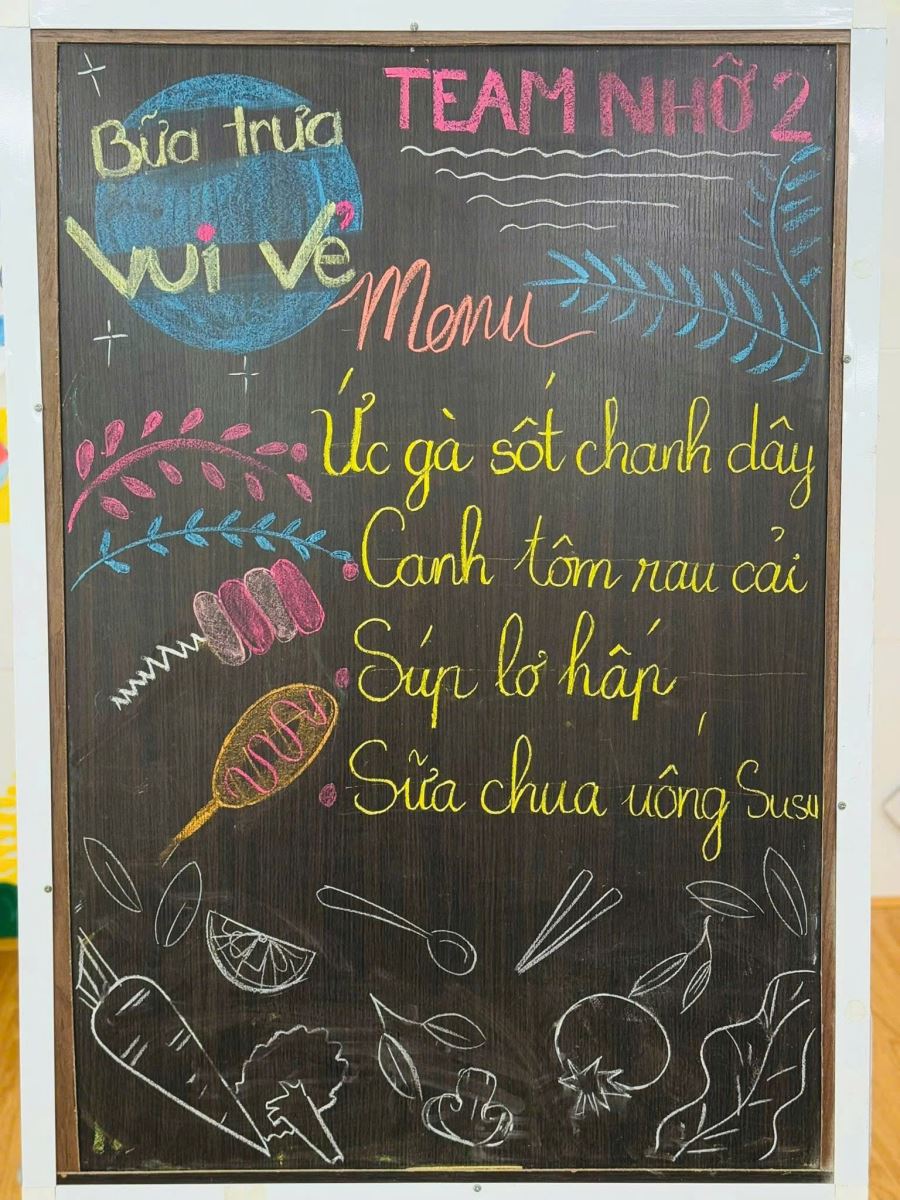 Bữa trưa
vui vẻ
TEAM NHỠ 2
Menu
Ức gà sốt chanh dây
Canh tôm rau cải
Súp lơ hấp
Sữa chua uống Susu